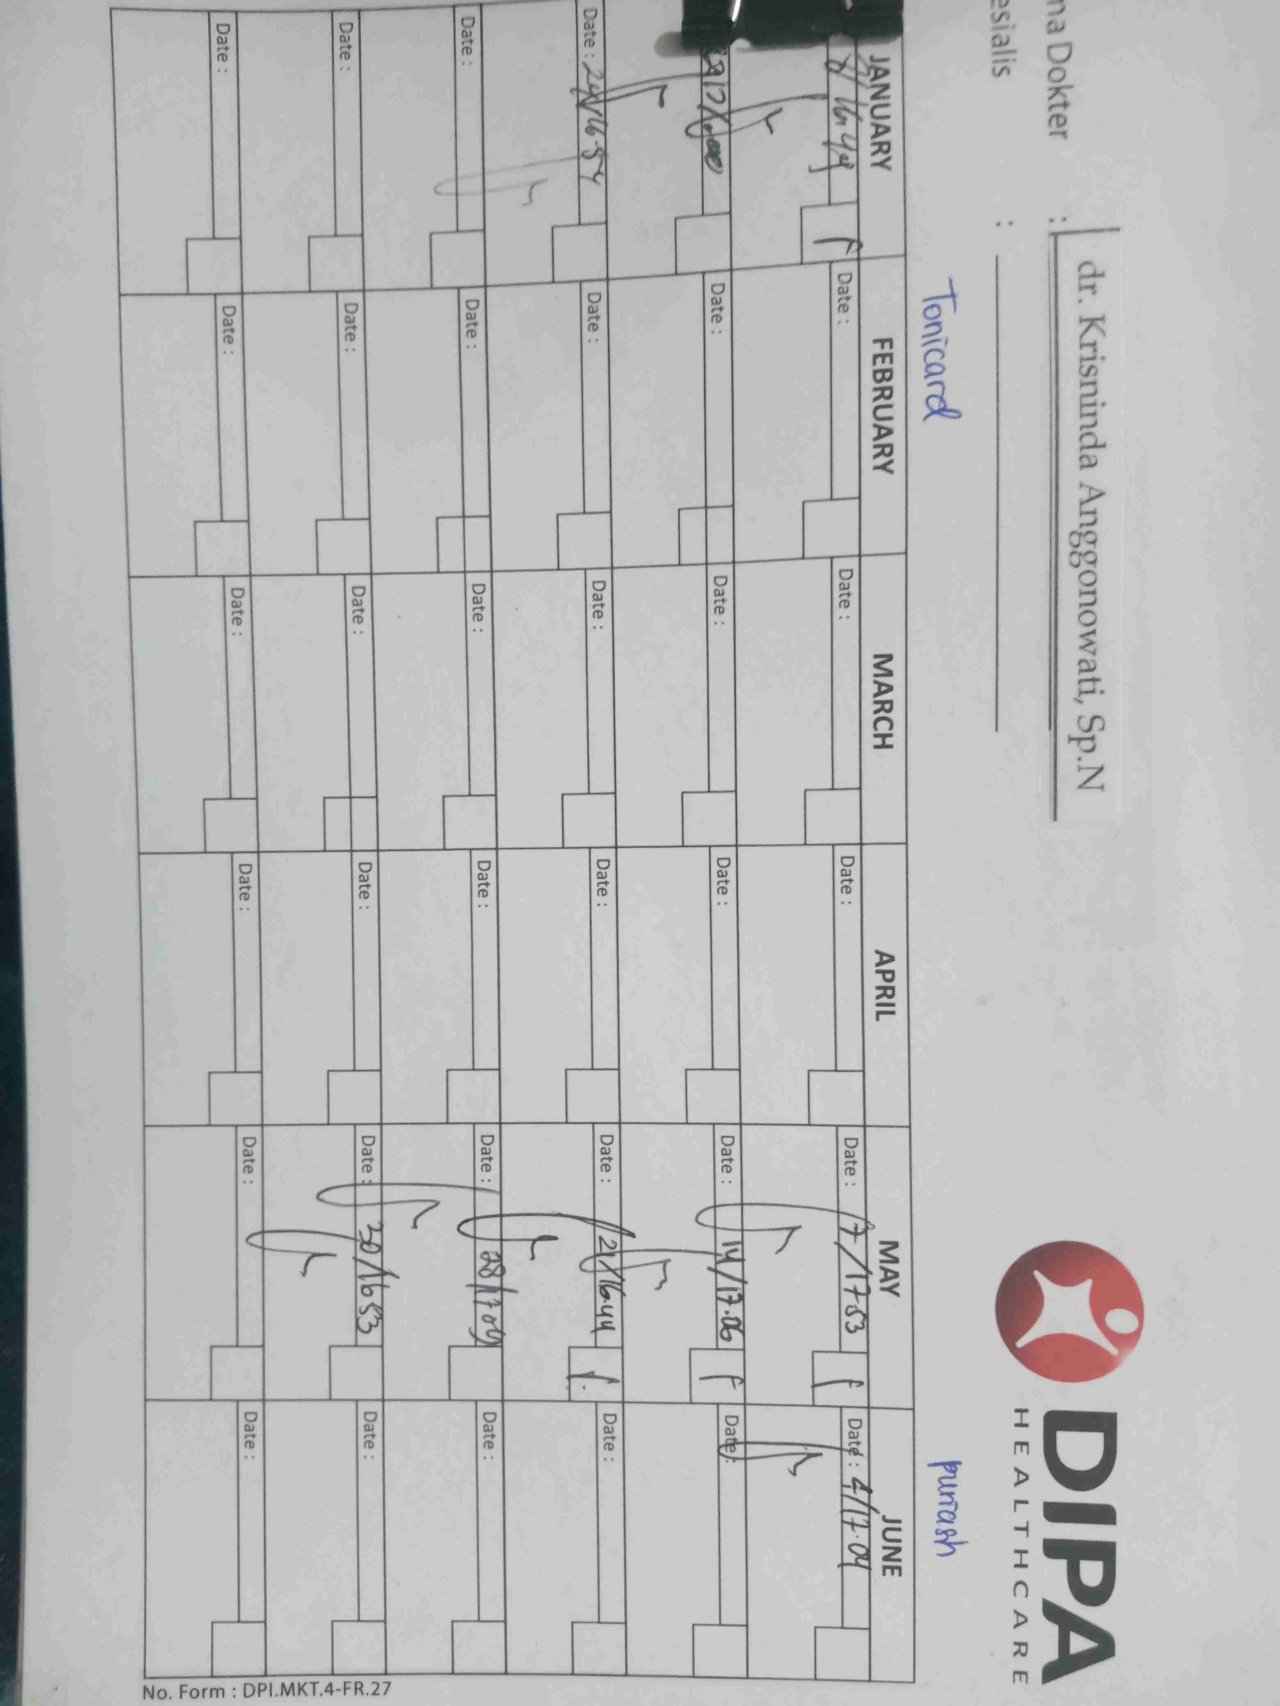 DIPA
HEALTHCARE
na Dokter : dr. Krisninda Anggonowati, Sp.N
esialis :
Tonicard purrash
JANUARY FEBRUARY MARCH APRIL MAY JUNE
8/16.49 Date : Date : Date : Date : 7/1753 Date : 4/17.09
f f
Date : Date : Date : Date : 14/17.06 Date :
f
Date : 24/16.54 Date : Date : Date : Date : 21/1644 Date :
f.
Date : Date : Date : Date : Date : 28/1709 Date :
Date : Date : Date : Date : Date : 30/1653 Date :
Date : Date : Date : Date : Date : Date :
No. Form : DPI.MKT.4-FR.27